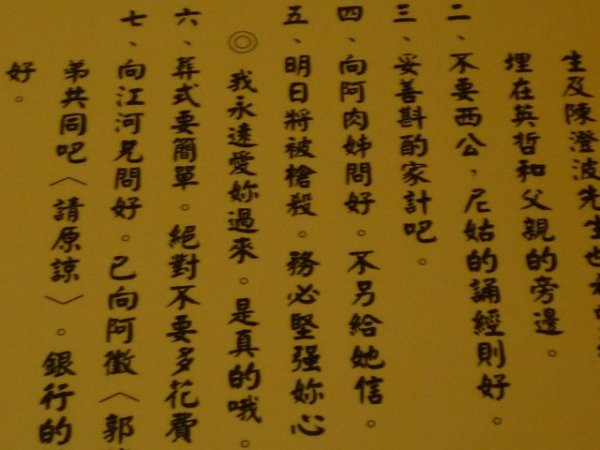 生及陳澄波先生也
埋在英哲和父親的旁邊。
二、不要西公，尼姑的誦經則好。
三、妥善斟酌家計吧。
四、向阿肉姊問好。不另給她信。
五、明日將被槍殺。務必堅强妳心
◎我永遠愛妳過來。是真的哦。
六、葬式要簡單。絕對不要多花費
七、向江河兄問好。已向阿徵〈郭
弟共同吧〈請原諒〉。銀行的
好。